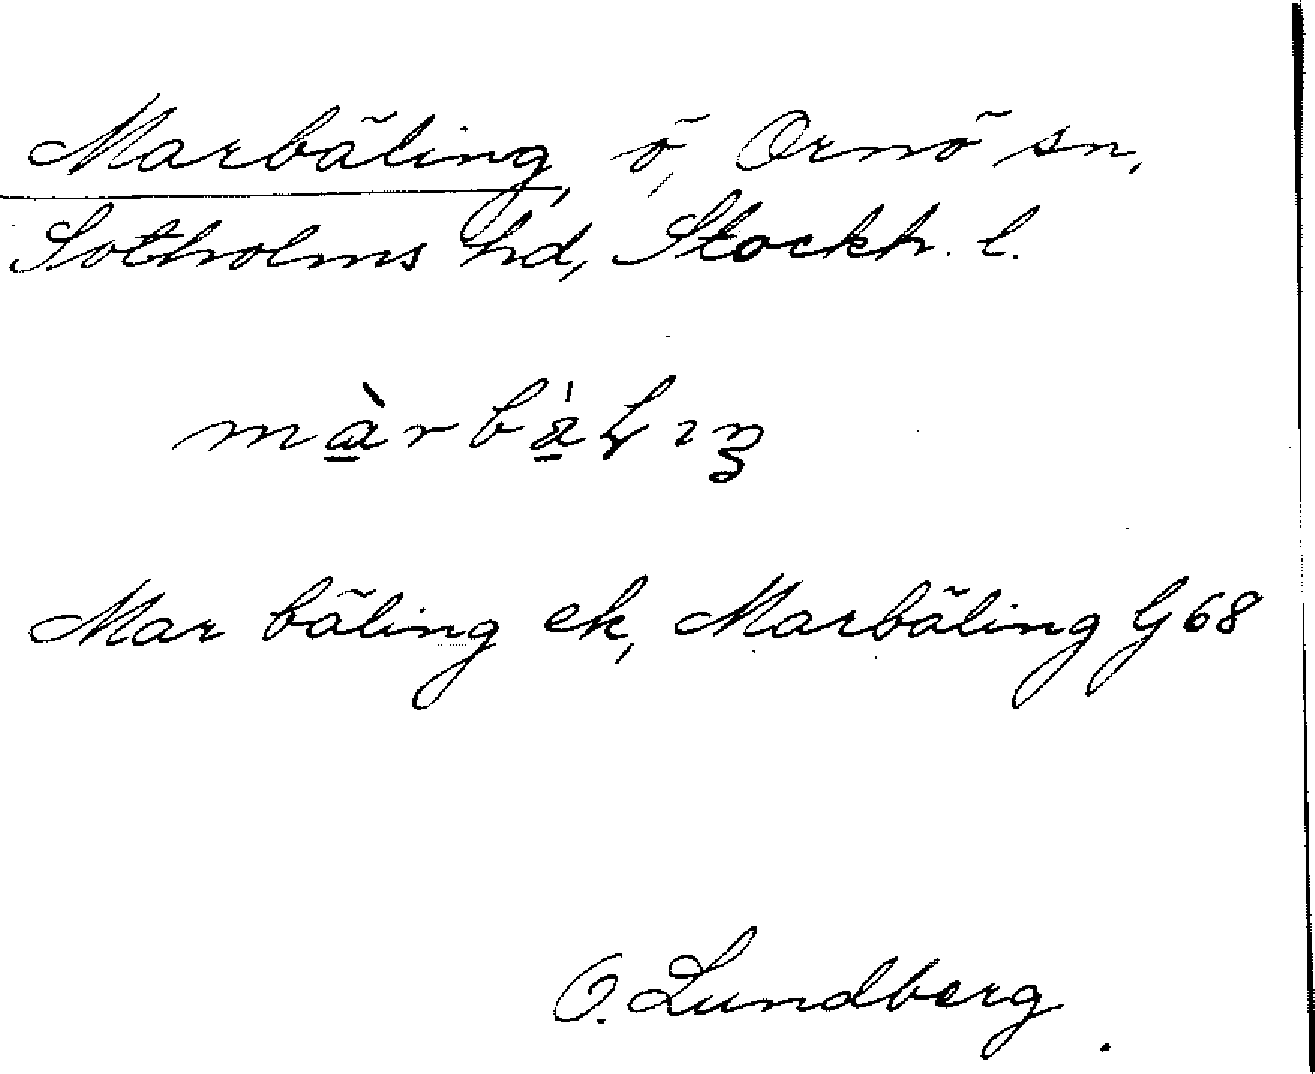 Marbäling, ö, Ornö sn,
Sotholms hd, Stockh. l.
màrbä̀lıŋ
Mar bäling ek, Marbäling G 68
O. Lundberg